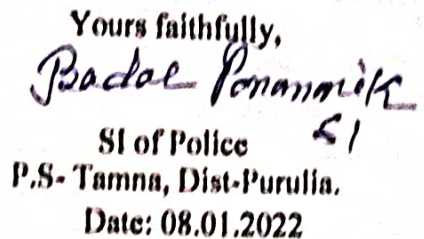 Yours faithfully,
Badal Pramanik
SI
SI of Police
P.S- Tamna, Dist-Purulia.
Date: 08.01.2022